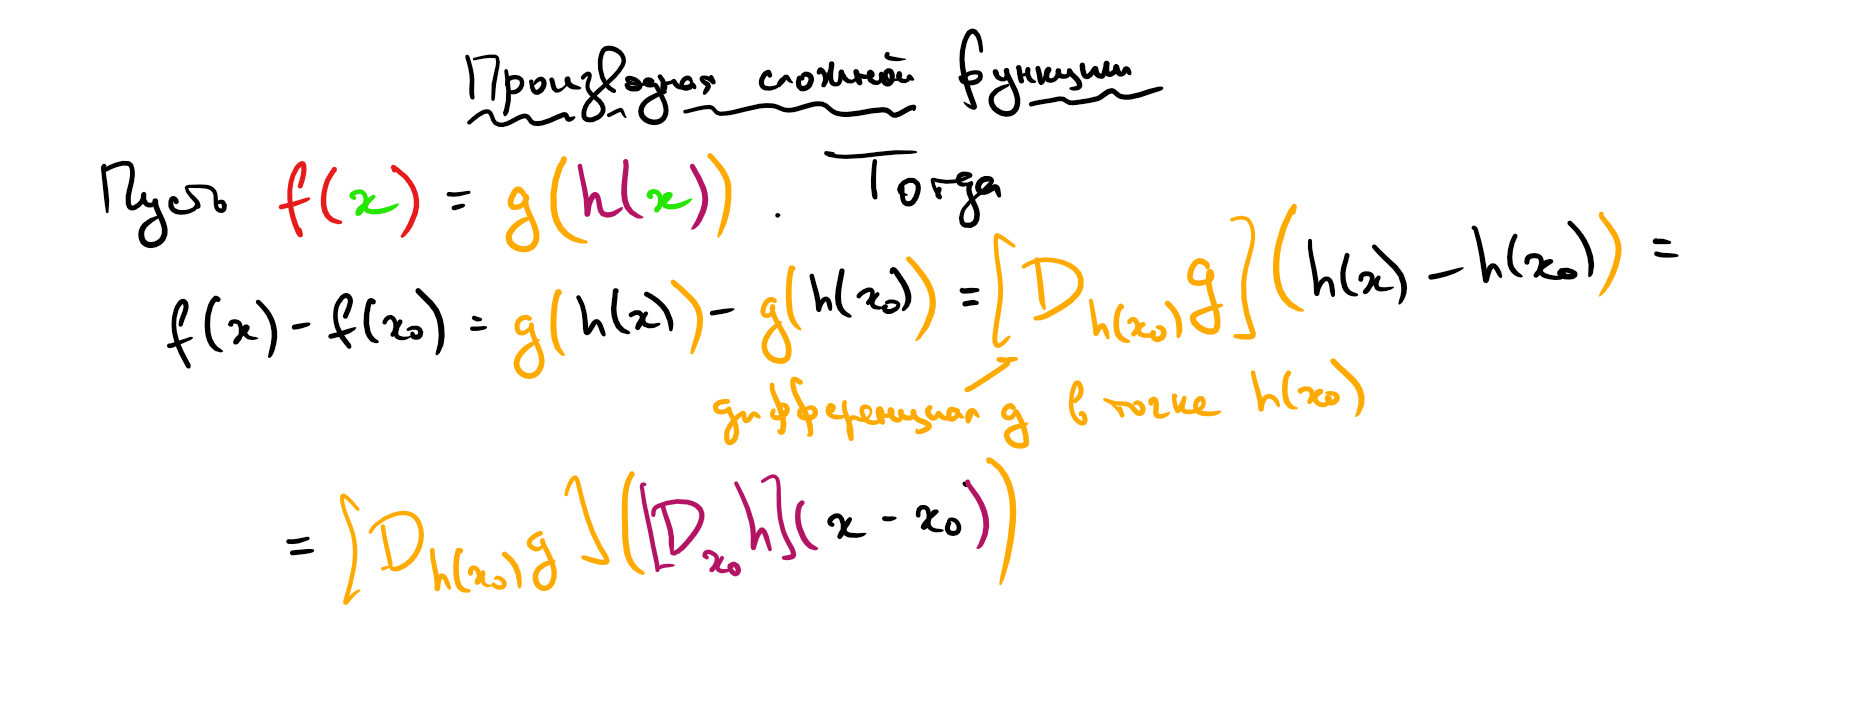 Производная сложной функции
Пусть f(x) = g(h(x)). Тогда
f(x) - f(x₀) = g(h(x)) - g(h(x₀)) = [D_{h(x₀)} g](h(x) - h(x₀)) =
дифференциал g в точке h(x₀)
= [D_{h(x₀)} g]([D_{x₀} h](x - x₀))